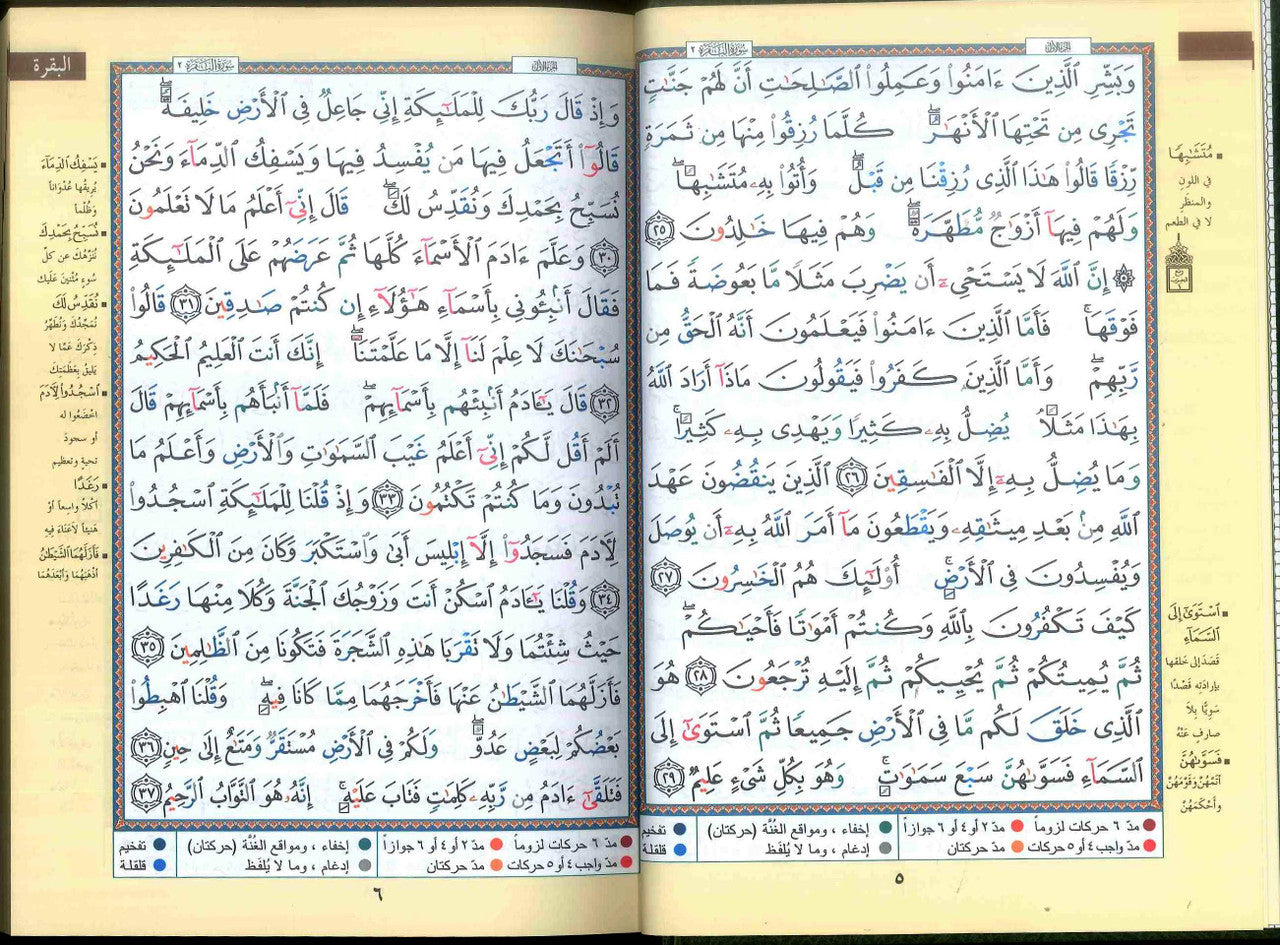 سورة البقرة ٢
الجزء الأول
وَبَشِّرِ ٱلَّذِينَ ءَامَنُوا۟ وَعَمِلُوا۟ ٱلصَّٰلِحَٰتِ أَنَّ لَهُمْ جَنَّٰتٍ
تَجْرِى مِن تَحْتِهَا ٱلْأَنْهَٰرُ ۖ كُلَّمَا رُزِقُوا۟ مِنْهَا مِن ثَمَرَةٍ
رِّزْقًا قَالُوا۟ هَٰذَا ٱلَّذِى رُزِقْنَا مِن قَبْلُ ۖ وَأُتُوا۟ بِهِۦ مُتَشَٰبِهًا ۖ
وَلَهُمْ فِيهَآ أَزْوَٰجٌ مُّطَهَّرَةٌ ۖ وَهُمْ فِيهَا خَٰلِدُونَ ٢٥
۞ إِنَّ ٱللَّهَ لَا يَسْتَحْىِۦٓ أَن يَضْرِبَ مَثَلًا مَّا بَعُوضَةً فَمَا
فَوْقَهَا ۚ فَأَمَّا ٱلَّذِينَ ءَامَنُوا۟ فَيَعْلَمُونَ أَنَّهُ ٱلْحَقُّ مِن
رَّبِّهِمْ ۖ وَأَمَّا ٱلَّذِينَ كَفَرُوا۟ فَيَقُولُونَ مَاذَآ أَرَادَ ٱللَّهُ
بِهَٰذَا مَثَلًا ۘ يُضِلُّ بِهِۦ كَثِيرًا وَيَهْدِى بِهِۦ كَثِيرًا ۚ
وَمَا يُضِلُّ بِهِۦٓ إِلَّا ٱلْفَٰسِقِينَ ٢٦ ٱلَّذِينَ يَنقُضُونَ عَهْدَ
ٱللَّهِ مِنۢ بَعْدِ مِيثَٰقِهِۦ وَيَقْطَعُونَ مَآ أَمَرَ ٱللَّهُ بِهِۦٓ أَن يُوصَلَ
وَيُفْسِدُونَ فِى ٱلْأَرْضِ ۚ أُو۟لَٰٓئِكَ هُمُ ٱلْخَٰسِرُونَ ٢٧
كَيْفَ تَكْفُرُونَ بِٱللَّهِ وَكُنتُمْ أَمْوَٰتًا فَأَحْيَٰكُمْ ۖ
ثُمَّ يُمِيتُكُمْ ثُمَّ يُحْيِيكُمْ ثُمَّ إِلَيْهِ تُرْجَعُونَ ٢٨ هُوَ
ٱلَّذِى خَلَقَ لَكُم مَّا فِى ٱلْأَرْضِ جَمِيعًا ثُمَّ ٱسْتَوَىٰٓ إِلَى
ٱلسَّمَآءِ فَسَوَّىٰهُنَّ سَبْعَ سَمَٰوَٰتٍ ۚ وَهُوَ بِكُلِّ شَىْءٍ عَلِيمٌ ٢٩
مُتَشَٰبِهًا
في اللونِ
والمنظرِ
لا في الطعمِ
ٱسْتَوَىٰٓ إِلَى
ٱلسَّمَآءِ
قَصَدَ إلى خلقها
بإرادتِهِ قصْدًا
سويًّا بِلا
صارفٍ عَنْهُ
فَسَوَّىٰهُنَّ
أتمّهُنّ وقوّمهُنّ
وأحكمهُنّ
مدّ ٦ حركات لزوماً
مدّ ٢ أو ٤ أو ٦ جوازاً
إخفاء ، ومواقع الغُنَّة (حركتان)
تفخيم
مدّ واجب ٤ أو ٥ حركات
مدّ حركتان
إدغام ، وما لا يُلفَظ
قلقلة
٥
البقرة
سورة البقرة ٢
الجزء الأول
وَإِذْ قَالَ رَبُّكَ لِلْمَلَٰٓئِكَةِ إِنِّى جَاعِلٌ فِى ٱلْأَرْضِ خَلِيفَةً ۖ
قَالُوٓا۟ أَتَجْعَلُ فِيهَا مَن يُفْسِدُ فِيهَا وَيَسْفِكُ ٱلدِّمَآءَ وَنَحْنُ
نُسَبِّحُ بِحَمْدِكَ وَنُقَدِّسُ لَكَ ۖ قَالَ إِنِّىٓ أَعْلَمُ مَا لَا تَعْلَمُونَ
٣٠ وَعَلَّمَ ءَادَمَ ٱلْأَسْمَآءَ كُلَّهَا ثُمَّ عَرَضَهُمْ عَلَى ٱلْمَلَٰٓئِكَةِ
فَقَالَ أَنۢبِـُٔونِى بِأَسْمَآءِ هَٰٓؤُلَآءِ إِن كُنتُمْ صَٰدِقِينَ ٣١ قَالُوا۟
سُبْحَٰنَكَ لَا عِلْمَ لَنَآ إِلَّا مَا عَلَّمْتَنَآ ۖ إِنَّكَ أَنتَ ٱلْعَلِيمُ ٱلْحَكِيمُ
٣٢ قَالَ يَٰٓـَٔادَمُ أَنۢبِئْهُم بِأَسْمَآئِهِمْ ۖ فَلَمَّآ أَنۢبَأَهُم بِأَسْمَآئِهِمْ قَالَ
أَلَمْ أَقُل لَّكُمْ إِنِّىٓ أَعْلَمُ غَيْبَ ٱلسَّمَٰوَٰتِ وَٱلْأَرْضِ وَأَعْلَمُ مَا
تُبْدُونَ وَمَا كُنتُمْ تَكْتُمُونَ ٣٣ وَإِذْ قُلْنَا لِلْمَلَٰٓئِكَةِ ٱسْجُدُوا۟
لِـَٔادَمَ فَسَجَدُوٓا۟ إِلَّآ إِبْلِيسَ أَبَىٰ وَٱسْتَكْبَرَ وَكَانَ مِنَ ٱلْكَٰفِرِينَ
٣٤ وَقُلْنَا يَٰٓـَٔادَمُ ٱسْكُنْ أَنتَ وَزَوْجُكَ ٱلْجَنَّةَ وَكُلَا مِنْهَا رَغَدًا
حَيْثُ شِئْتُمَا وَلَا تَقْرَبَا هَٰذِهِ ٱلشَّجَرَةَ فَتَكُونَا مِنَ ٱلظَّٰلِمِينَ ٣٥
فَأَزَلَّهُمَا ٱلشَّيْطَٰنُ عَنْهَا فَأَخْرَجَهُمَا مِمَّا كَانَا فِيهِ ۖ وَقُلْنَا ٱهْبِطُوا۟
بَعْضُكُمْ لِبَعْضٍ عَدُوٌّ ۖ وَلَكُمْ فِى ٱلْأَرْضِ مُسْتَقَرٌّ وَمَتَٰعٌ إِلَىٰ حِينٍ ٣٦
فَتَلَقَّىٰٓ ءَادَمُ مِن رَّبِّهِۦ كَلِمَٰتٍ فَتَابَ عَلَيْهِ ۚ إِنَّهُۥ هُوَ ٱلتَّوَّابُ ٱلرَّحِيمُ ٣٧
يَسْفِكُ ٱلدِّمَآءَ
يُريقُها عُدْوَاناً
وَظُلْماً
نُسَبِّحُ بِحَمْدِكَ
نُنَزِّهُكَ عن كلِّ
سُوءٍ مُثْنينَ عليك
نُقَدِّسُ لَكَ
نُمجِّدُكَ ونُطَهِّرُ
ذِكْرَكَ عَمَّا لا
يَليقُ بعظَمتِكَ
ٱسْجُدُوا۟ لِـَٔادَمَ
اخضَعُوا له
أو سجودَ
تحيةٍ وتعظيم
رَغَدًا
أكْلاً واسِعاً أوْ
هَنيئاً لاعَنَاءَ فِيهِ
فَأَزَلَّهُمَا ٱلشَّيْطَٰنُ
أذْهَبَهُما وأبعَدَهُما
مدّ ٦ حركات لزوماً
مدّ ٢ أو ٤ أو ٦ جوازاً
إخفاء ، ومواقع الغُنَّة (حركتان)
تفخيم
مدّ واجب ٤ أو ٥ حركات
مدّ حركتان
إدغام ، وما لا يُلفَظ
قلقلة
٦